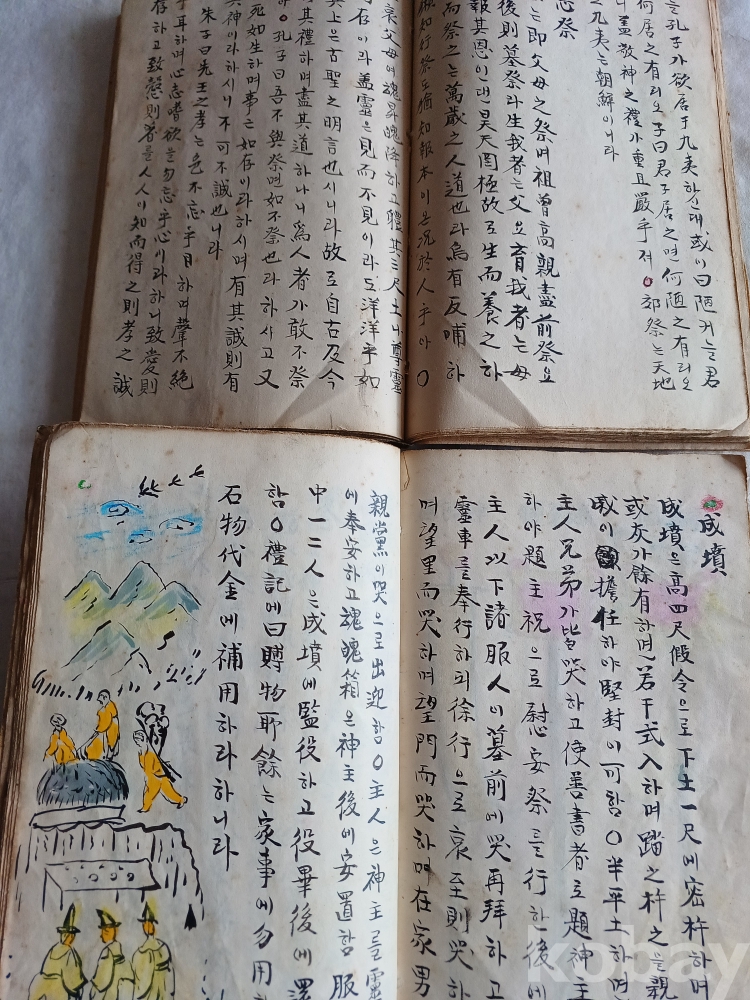 늘孔子가欲居于九夷하신대或이曰陋커늘君
何居之有리오子曰君子居之면何陋之有리오
니蓋敬神之禮가重且嚴乎져○郊祭는天地
九夷는朝鮮이니라
忌祭
는即父母之祭며祖曾高親盡前祭요
後則墓祭라生我者는父요育我者는母
報其恩인댄昊天罔極故로生而養之하
而祭之는萬歲之人道也라烏有反哺하
知行祭도猶知報本이은況於人乎아○
哀父母여魂昇魄降하고體其三尺土니尊靈
存이라蓋靈은見而不見이라도洋洋乎如
其上은古聖之明言也시니라故로自古及今
其禮하며盡其道하나니爲人者가敢不祭
○孔子曰吾不與祭면如不祭也라하시고又
死如生하며事亡如存이라하시며有其誠則有
其神이라하시니不可不誠也니라
朱子曰先王之孝는色不忘乎目하며聲不絕
乎耳하며心志嗜欲을勿忘乎心이라하니致愛則
存하고致慤則著를人人이知而得之則孝之誠
成墳
成墳은高四尺假令으로下土一尺에密杵하며
或灰가餘有하면若干式入하며踏之杵之를親
戚이擔任하야堅封이可함○半平土하며
主人兄弟가皆哭하고使善書者로題神主
하야題主祝으로慰安祭를行한後에
主人以下諸服人이墓前에哭再拜하고
靈車를奉行하되徐行으로哀至則哭하
며望里而哭하며望門而哭하며在家男
親黨이哭으로出迎함○主人은神主를靈
에奉安하고魂魄箱은神主後에安置함服
中一二人은成墳에監役하고役畢後에還
함○禮記에曰賻物耶餘는家事에勿用하
石物代金에補用하라하니라
kobay